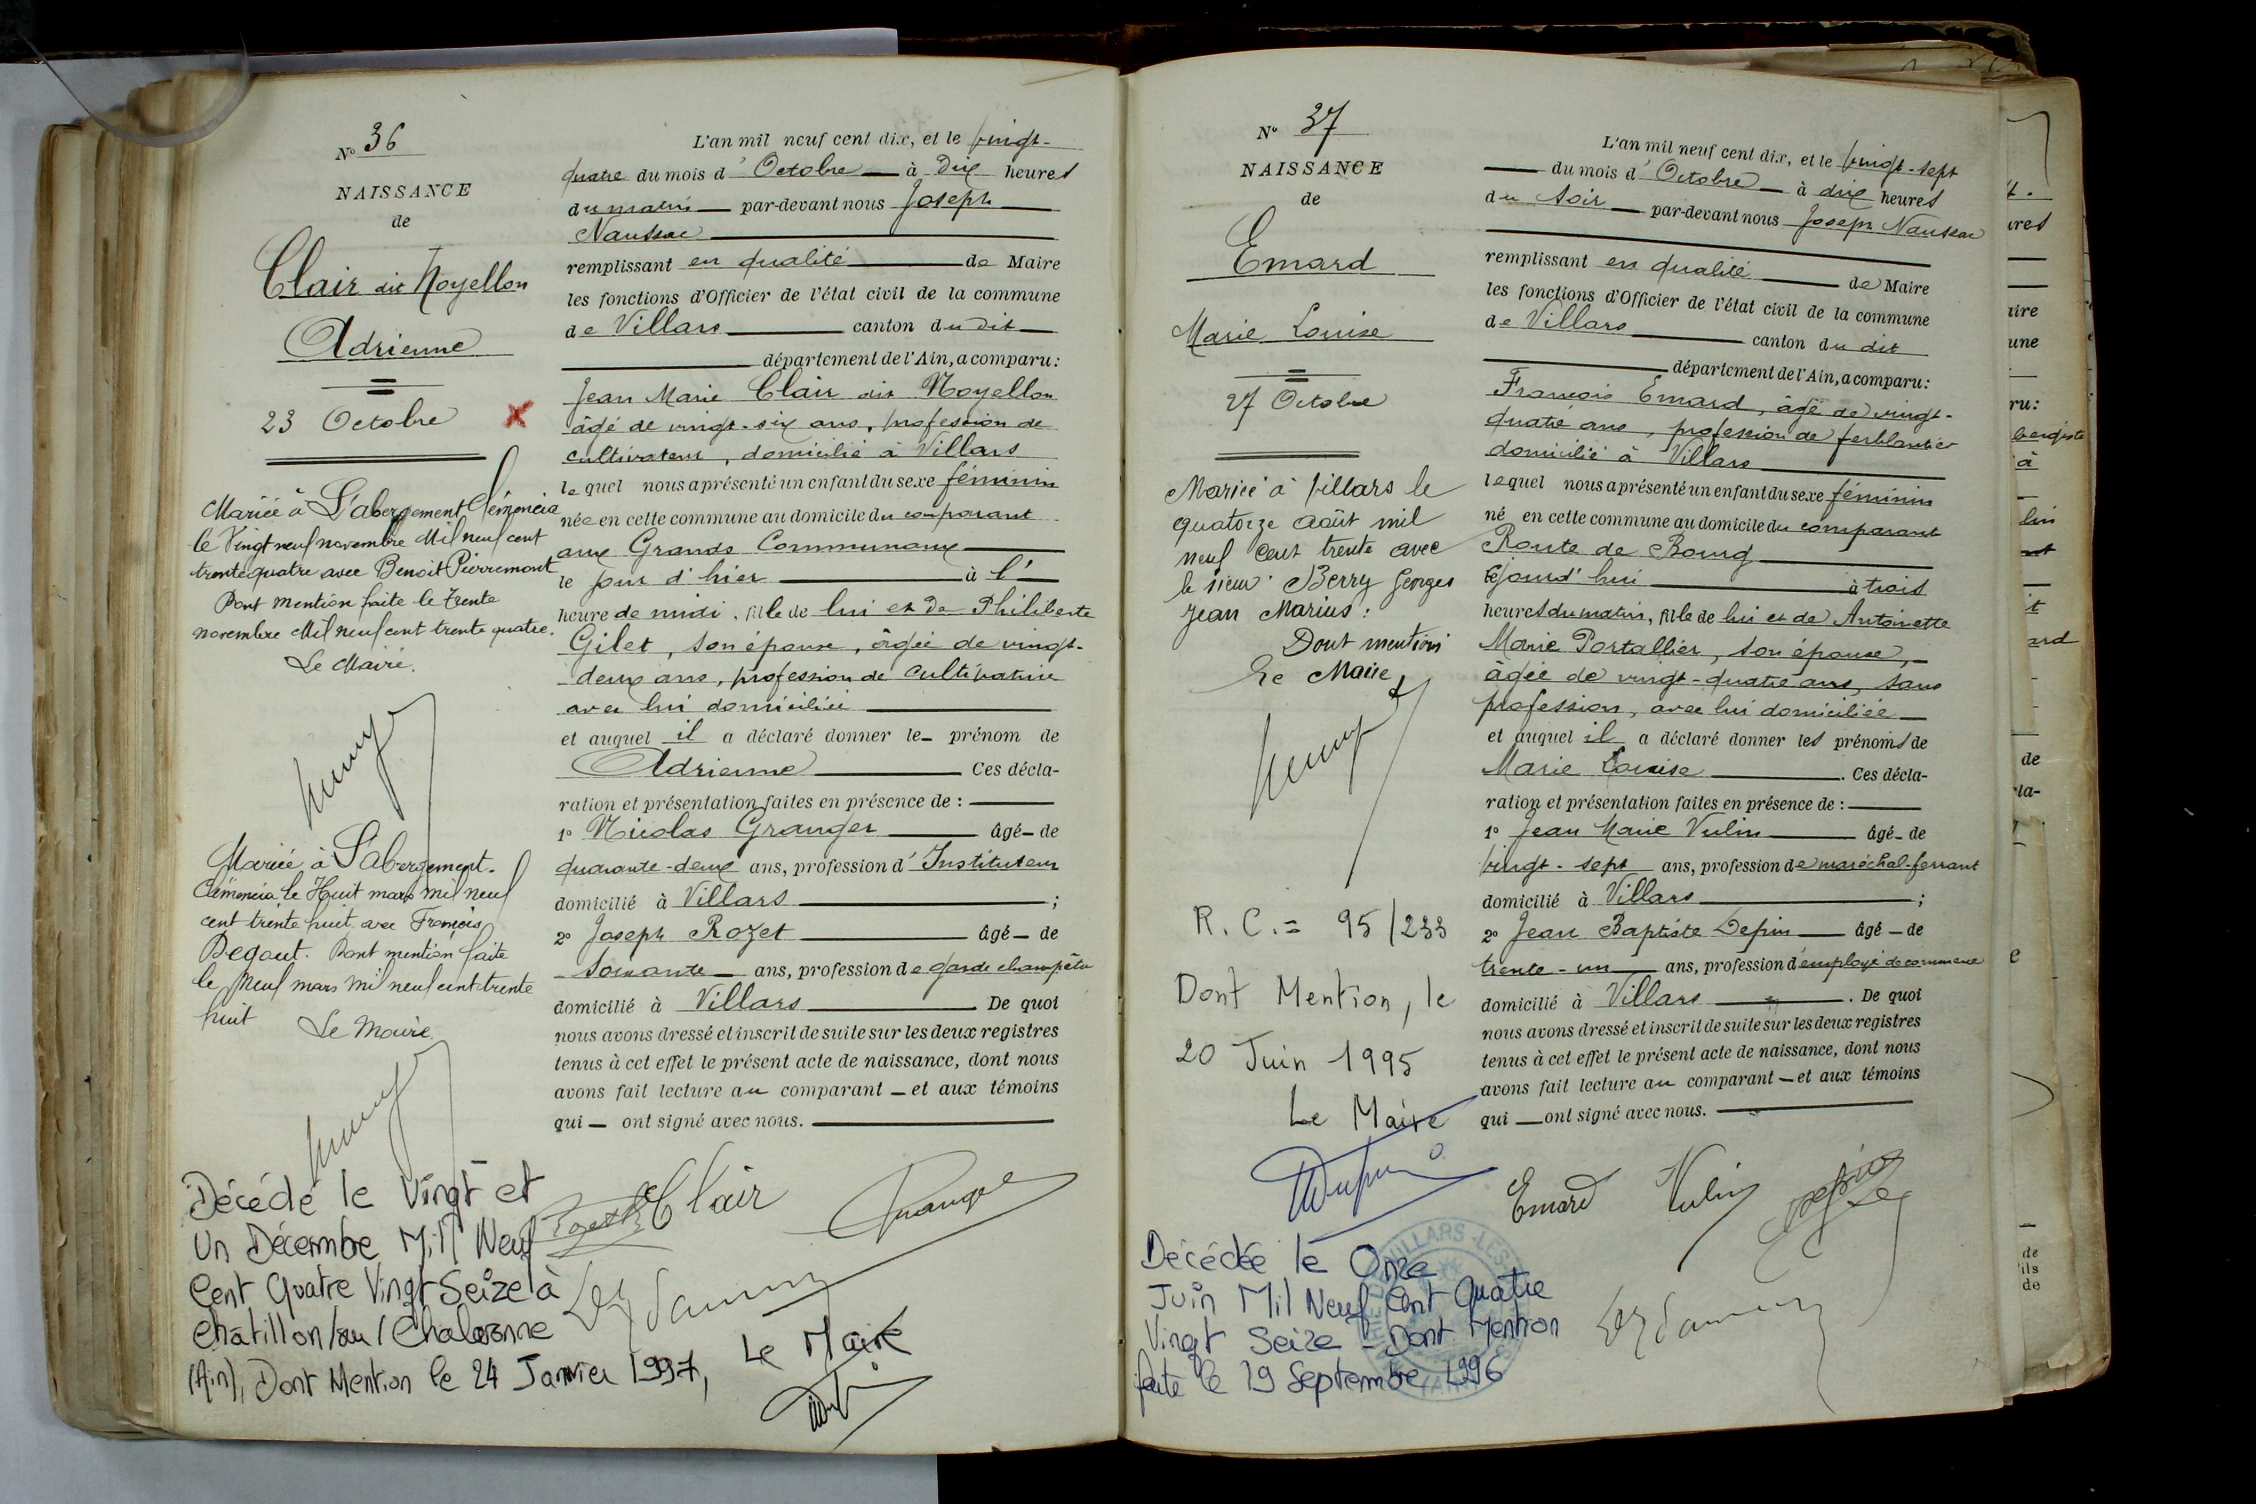 N° 36
NAISSANCE
de
Clair dit Noyellon
Adrienne
23 Octobre
Mariée à L'abergement Clémencia
le Vingt neuf novembre Mil neuf cent
trente quatre avec Benoit Pierremont
Dont mention faite le trente
novembre Mil neuf cent trente quatre.
Le Maire.
Mariée à L'abergement-
Clémencia le Huit mars mil neuf
cent trente huit avec François
Degout. Dont mention faite
le Neuf mars mil neuf cent trente
huit Le Maire
Décédé le Vingt et
Un Décembre Mil Neuf
Cent Quatre Vingt Seize à
Chatillon/sur/Chalaronne
(Ain), Dont Mention le 24 Janvier 1997,
Le Maire
L'an mil neuf cent dix, et le vingt-
quatre du mois d'Octobre à Dix heures
du matin par-devant nous Joseph
Naussac
remplissant en qualité de Maire
les fonctions d'Officier de l'état civil de la commune
de Villars canton du dit
département de l'Ain, a comparu:
Jean Marie Clair dit Noyellon
âgé de vingt-six ans, profession de
cultivateur, domicilié à Villars
lequel nous a présenté un enfant du sexe féminin
née en cette commune au domicile du comparant
aux Grands Communaux
le jour d'hier à l'
heure de midi, fille de lui et de Philiberte
Gilet, son épouse, âgée de vingt-
deux ans, profession de cultivatrice
avec lui domiciliée
et auquel il a déclaré donner le prénom de
Adrienne Ces décla-
ration et présentation faites en présence de :
1° Nicolas Granger âgé de
quarante-deux ans, profession d'Instituteur
domicilié à Villars ;
2° Joseph Rozet âgé de
soixante ans, profession de garde champêtre
domicilié à Villars De quoi
nous avons dressé et inscrit de suite sur les deux registres
tenus à cet effet le présent acte de naissance, dont nous
avons fait lecture au comparant et aux témoins
qui ont signé avec nous.
Clair
N° 37
NAISSANCE
de
Emard
Marie Louise
27 Octobre
Mariée à Villars le
quatorze Août mil
neuf cent trente avec
le sieur Berry Georges
Jean Marius :
Dont mention
Le Maire,
R.C. = 95/233
Dont Mention, le
20 Juin 1995
Le Maire
Décédée le Onze
Juin Mil Neuf Cent Quatre
Vingt Seize - Dont Mention
faite le 19 Septembre 1996
L'an mil neuf cent dix, et le vingt-sept
du mois d'Octobre à dix heures
du soir par-devant nous Joseph Naussac
remplissant en qualité de Maire
les fonctions d'Officier de l'état civil de la commune
de Villars canton du dit
département de l'Ain, a comparu:
François Emard, âgé de vingt-
quatre ans, profession de ferblantier
domicilié à Villars
lequel nous a présenté un enfant du sexe féminin
né en cette commune au domicile du comparant
Route de Bourg
cejourd'hui à trois
heures du matin, fille de lui et de Antoinette
Marie Portallier, son épouse,
âgée de vingt-quatre ans, sans
profession, avec lui domiciliée
et auquel il a déclaré donner les prénoms de
Marie Louise . Ces décla-
ration et présentation faites en présence de :
1° Jean Marie Vulin âgé de
vingt-sept ans, profession de maréchal-ferrant
domicilié à Villars ;
2° Jean Baptiste Depin âgé de
trente-un ans, profession d'employé de commerce
domicilié à Villars . De quoi
nous avons dressé et inscrit de suite sur les deux registres
tenus à cet effet le présent acte de naissance, dont nous
avons fait lecture au comparant et aux témoins
qui ont signé avec nous.
Emard Vulin Depin